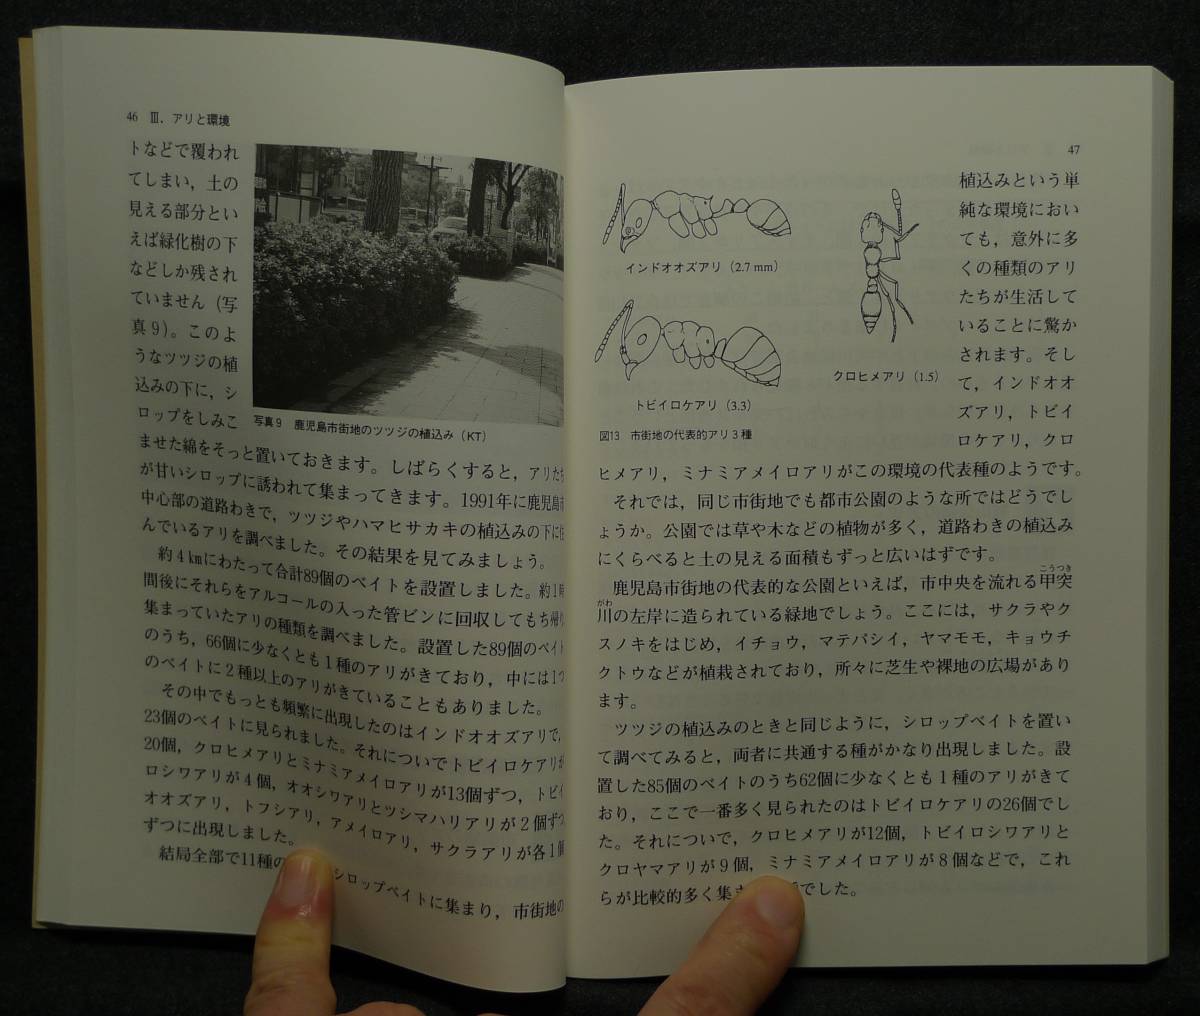 46 Ⅲ．アリと環境
トなどで覆われ
てしまい，土の
見える部分とい
えば緑化樹の下
などしか残され
ていません（写
真9）。このよ
うなツツジの植
込みの下に，シ
ロップをしみこ
写真9 鹿児島市街地のツツジの植込み（KT）
ませた綿をそっと置いておきます。しばらくすると，アリた
が甘いシロップに誘われて集まってきます。1991年に鹿児島市
中心部の道路わきで，ツツジやハマヒサカキの植込みの下に
んでいるアリを調べました。その結果を見てみましょう。
約4㎞にわたって合計89個のベイトを設置しました。約1
間後にそれらをアルコールの入った管ビンに回収してもち帰り
集まっていたアリの種類を調べました。設置した89個のベイト
のうち，66個に少なくとも1種のアリがきており，中には1つ
のベイトに2種以上のアリがきていることもありました。
その中でもっとも頻繁に出現したのはインドオオズアリで，
23個のベイトに見られました。それについでトビイロケアリが
20個，クロヒメアリとミナミアメイロアリが13個ずつ，トビイ
ロシワアリが4個，オオシワアリとツシマハリアリが2個ずつ
オオズアリ，トフシアリ，アメイロアリ，サクラアリが各1個
ずつに出現しました。
結局全部で11種の シロップベイトに集まり，市街地の
47
インドオオズアリ（2.7 mm）
トビイロケアリ（3.3）
クロヒメアリ（1.5）
図13 市街地の代表的アリ3種
植込みという単
純な環境におい
ても，意外に多
くの種類のアリ
たちが生活して
いることに驚か
されます。そし
て，インドオオ
ズアリ，トビイ
ロケアリ，クロ
ヒメアリ，ミナミアメイロアリがこの環境の代表種のようです。
それでは，同じ市街地でも都市公園のような所ではどうでし
ょうか。公園では草や木などの植物が多く，道路わきの植込み
にくらべると土の見える面積もずっと広いはずです。
鹿児島市街地の代表的な公園といえば，市中央を流れる甲突
こうつき
川の左岸に造られている緑地でしょう。ここには，サクラやク
がわ
スノキをはじめ，イチョウ，マテバシイ，ヤマモモ，キョウチ
クトウなどが植栽されており，所々に芝生や裸地の広場があり
ます。
ツツジの植込みのときと同じように，シロップベイトを置い
て調べてみると，両者に共通する種がかなり出現しました。設
置した85個のベイトのうち62個に少なくとも1種のアリがきて
おり，ここで一番多く見られたのはトビイロケアリの26個でし
た。それについで，クロヒメアリが12個，トビイロシワアリと
クロヤマアリが9個，ミナミアメイロアリが8個などで，これ
らが比較的多く集ま でした。